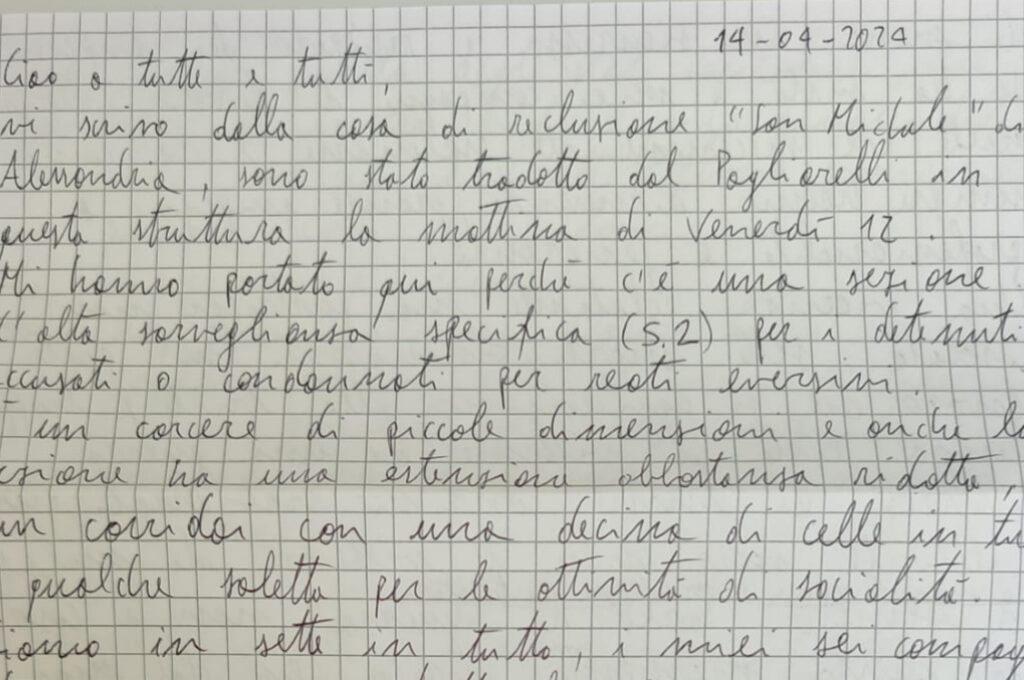 14-04-2024
Ciao a tutte e tutti,
vi scrivo dalla casa di reclusione "San Michele" di
Alessandria, sono stato tradotto dal Pagliarelli in
questa struttura la mattina di Venerdì 12.
Mi hanno portato qui perchè c'è una sezione
alta sorveglianza specifica (S.2) per i detenuti
ccusati o condannati per reati eversivi.
un carcere di piccole dimensioni e anche l
zione ha una estensione abbastanza ridotta,
un corridoi con una decina di celle in tu
qualche saletta per le attività di socialità.
iamo in sette in tutto, i miei sei compag